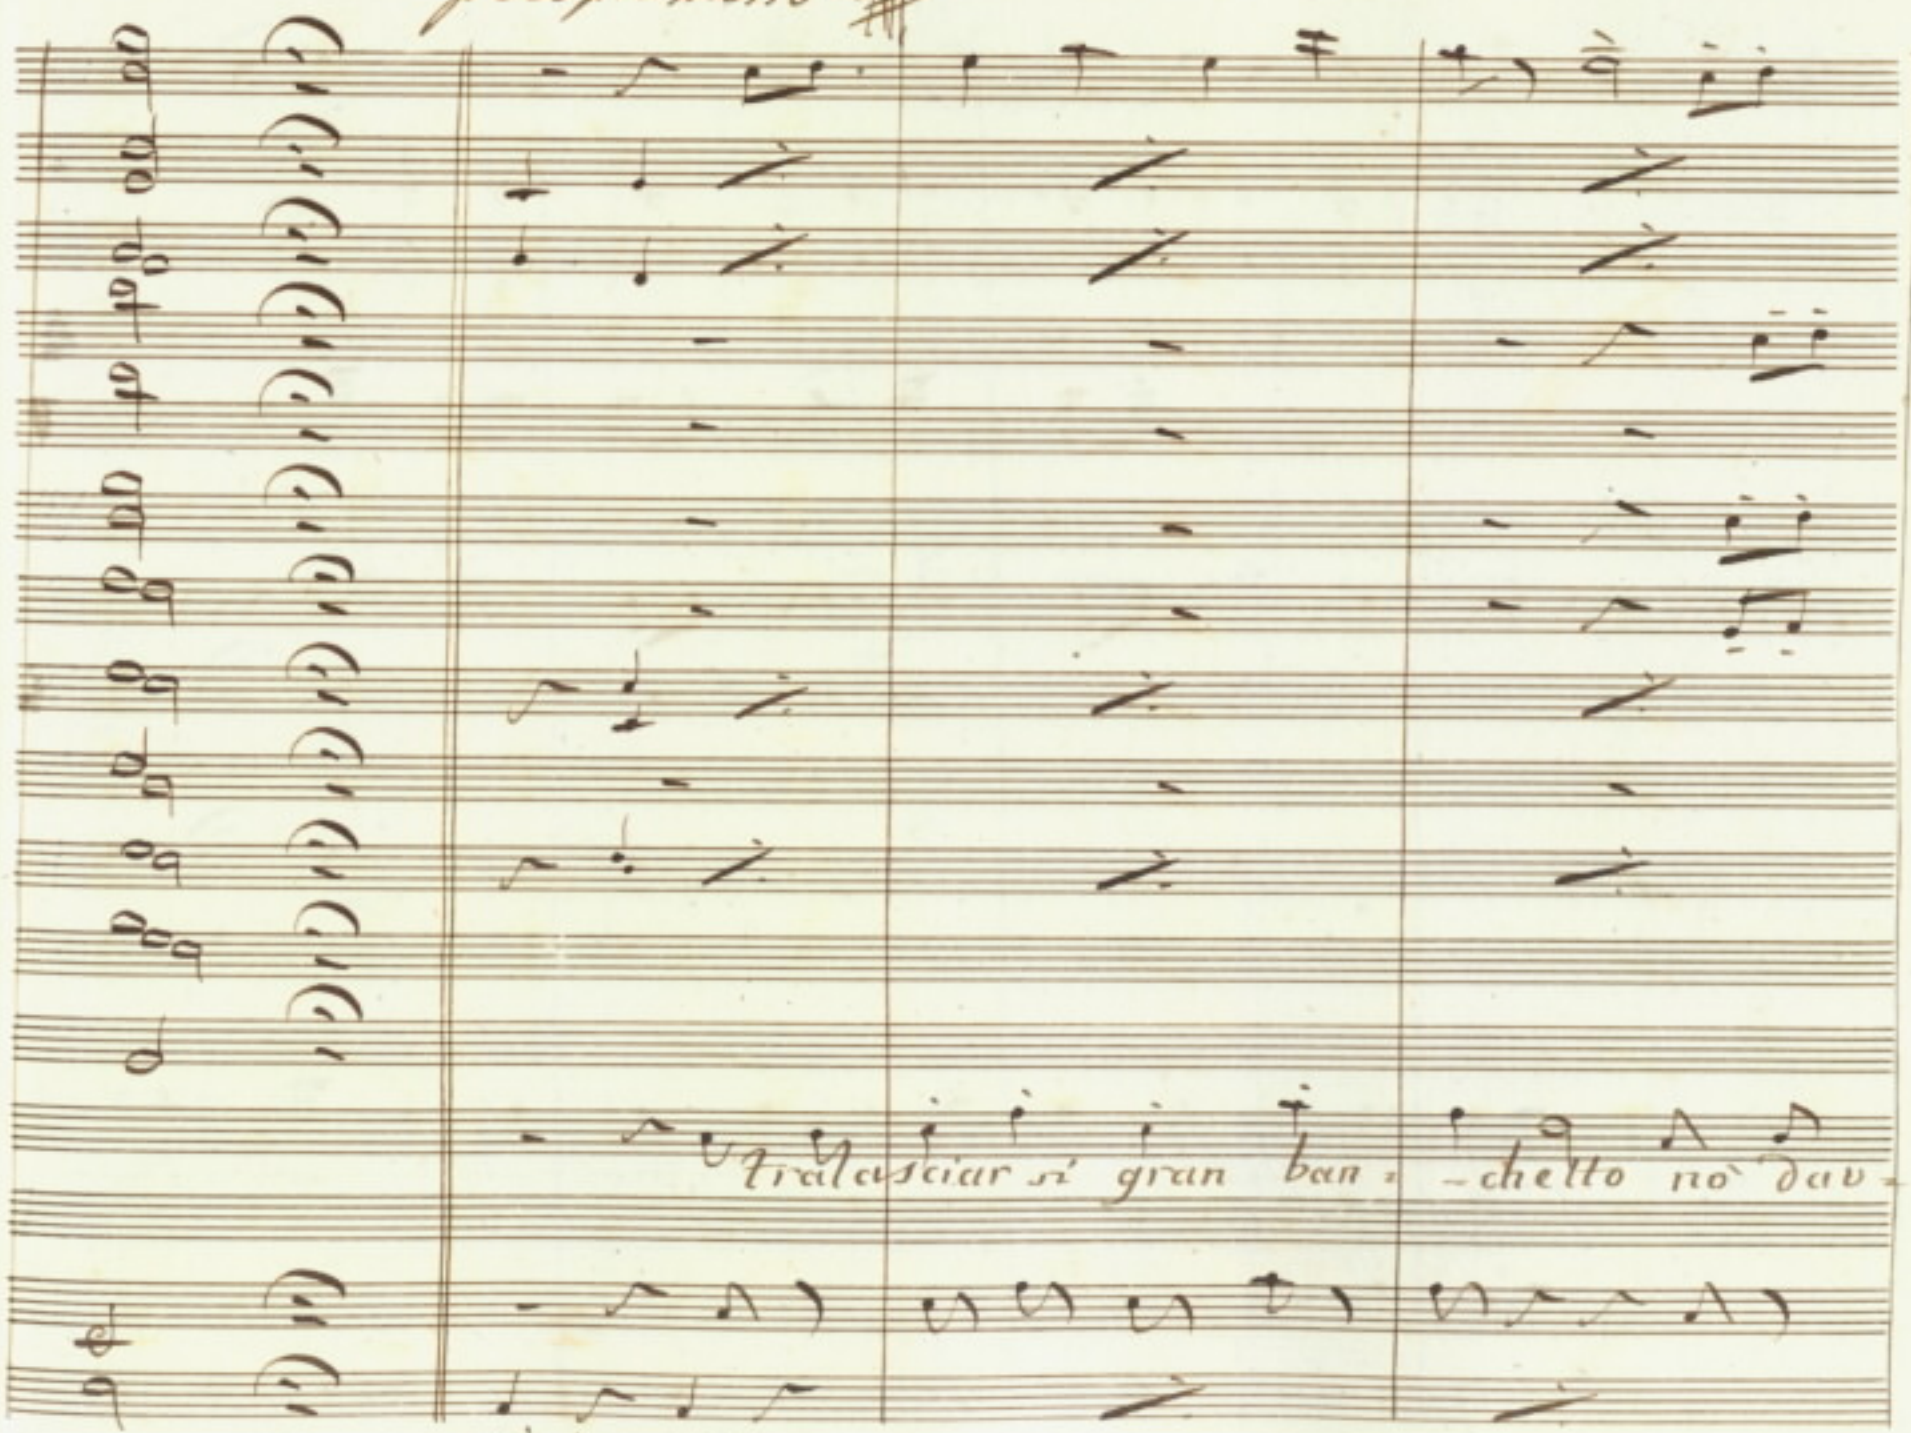 tralasciar si gran ban - - chetto nò dav -